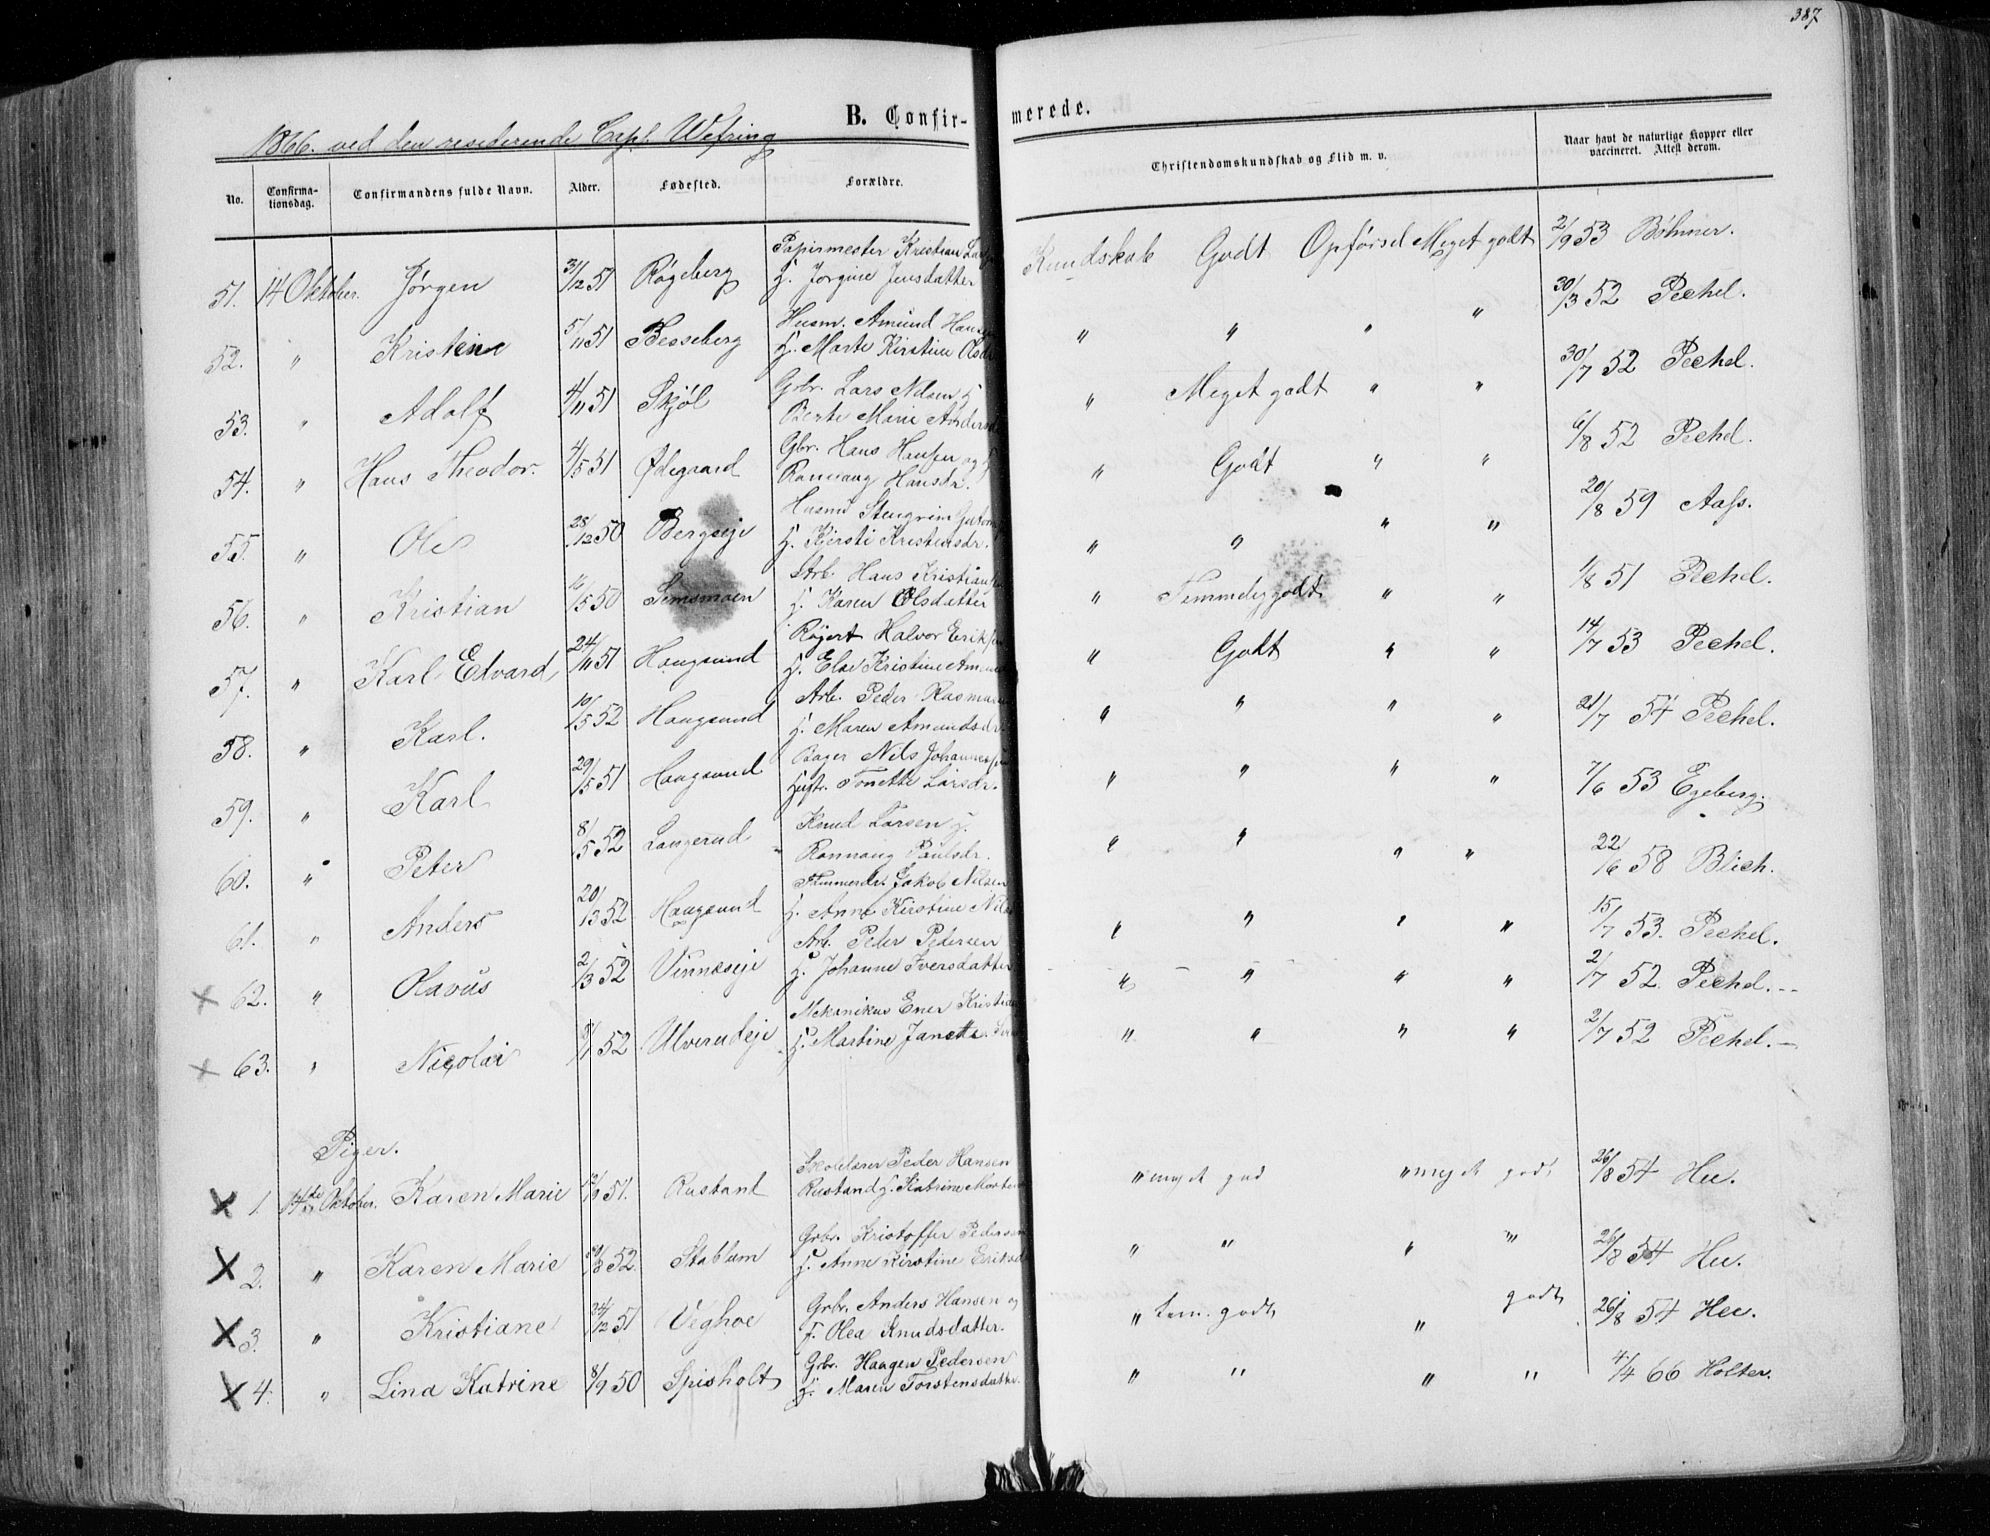 387
1866. ved den residerende Capl. Wefring
B. Confirmerede.
No. Confirmationsdag. Confirmandens fulde Navn. Alder. Fødested. Forældre. Christendomskundskab og Flid m. v. Naar havt de naturlige Kopper eller vaccineret. Attest derom.
51. 14 Oktober. Jørgen 31/12 51 Røgeberg Papirmester Kristian H. Jørgine Jensdatter Kundskab Godt Opførsel Meget godt 2/9 53 Bøhmer.
52. " Kristine 5/11 51 Besseberg Husm. Amund Hansen H. Marte Kirstine Olsdr " " " " 30/3 52 Pechel.
53. " Adolf 4/11 51 Skjøl Gbr. Lars Nilsen H Berte Marie Andersd " Meget godt " " 30/7 52 Pechel.
54. " Hans Theodor. 4/5 51 Ødegaard Gbr. Hans Hansen og H Rannaug Hansdr. " Godt " " 6/8 52 Pechel.
55. " Ole 28/12 50 Bergseje Husm Stengrim H. Kjersti Kristensdr. " " " " 20/8 59 Aass.
56. " Kristian 16/5 50 Semsmoen Arb. Hans Kristiansen H. Karen Olsdatter " Temmelig godt " " 1/8 51 Pechel.
57. " Karl Edvard 24/11 51 Haugsund Røgert Halvor Eriksen H. Else Kristine " Godt " " 14/7 53 Pechel.
58. " Karl. 10/5 52 Haugsund Arb. Peder Rasmussen H. Maren Amundsdr " " " " 21/7 54 Pechel.
59. " Karl 29/5 51 Haugsund Bager Nils Johannessen Hustr. Tonette Larsdr. " " " " 7/6 53 Egeberg.
60. " Peter 8/5 52 Langerud Knud Larsen H. Rannaug Paulsdr. " " " " 22/6 58 Blich.
61. " Anders 20/3 52 Haugsund Tømmerdr. Jakob Nilsen H. Anne Kirstine " " " " 15/7 53. Pechel.
x 62. " Olavus 2/3 52 Vinnæseje Arb. Peder Pedersen H. Johanne Iversdatter " " " " 2/7 52. Pechel.
x 63. " Nicolai 9/1 52 Ulverudeje Mekanikus Ener Kristian H. Martine Janette " " " " 2/7 52 Pechel.
Piger.
x 1. 14de Oktober. Karen Marie 12/9 51. Rustand Skolelærer Peder Hansen Rustand H. Katrine " meget god " meget godt 26/8 54 Hu.
x 2. " Karen Marie 30/3 52. Stablum Gbr. Kristoffer Pedersen H. Anne Kirstine Eriksd " " " " 26/8 54 Hu.
x 3. " Kristiane 24/12 51 Veghoe Gbr. Anders Hansen og H. Olea Knudsdatter. " tem. godt " godt 26/8 54 Hu.
x 4. " Lina Katrine 8/9 50 Spisholt Gbr. Haagen Pedersen H. Maren Torstensdatter. " " " " 4/4 66 Holter.